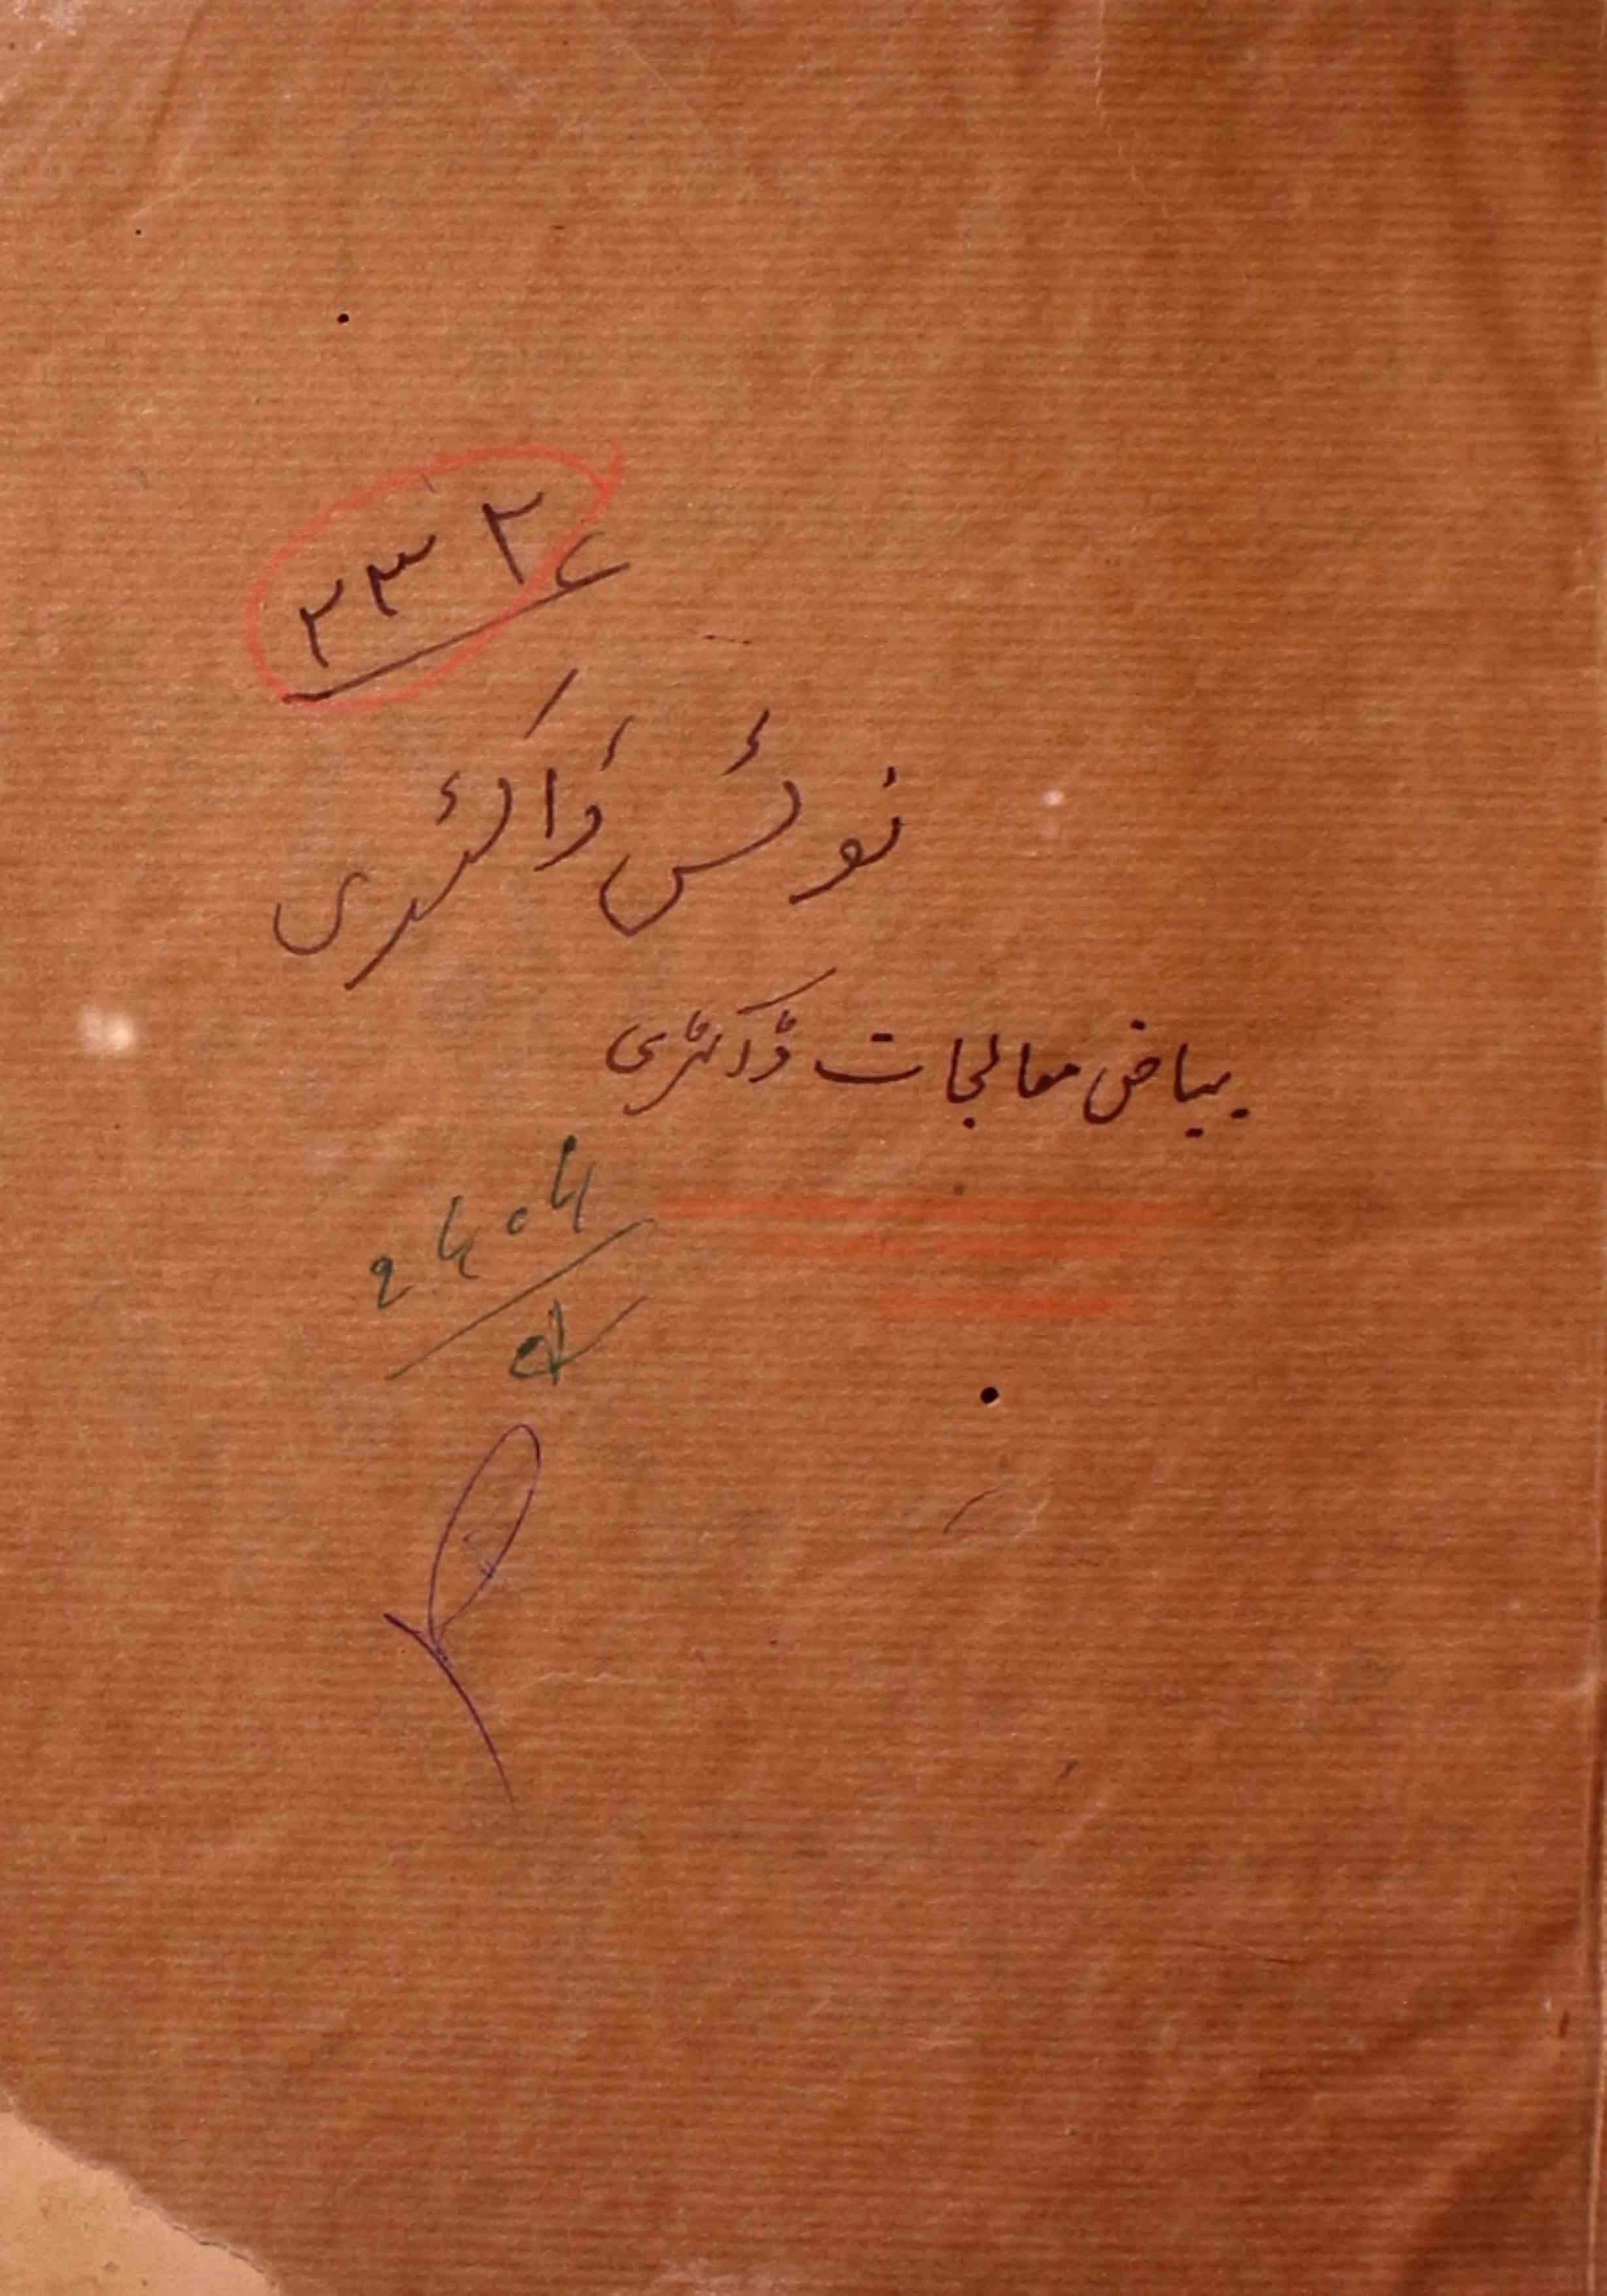 ۲۳۲
نوٹس ڈاکٹری
بیاض معالجات ڈاکٹری